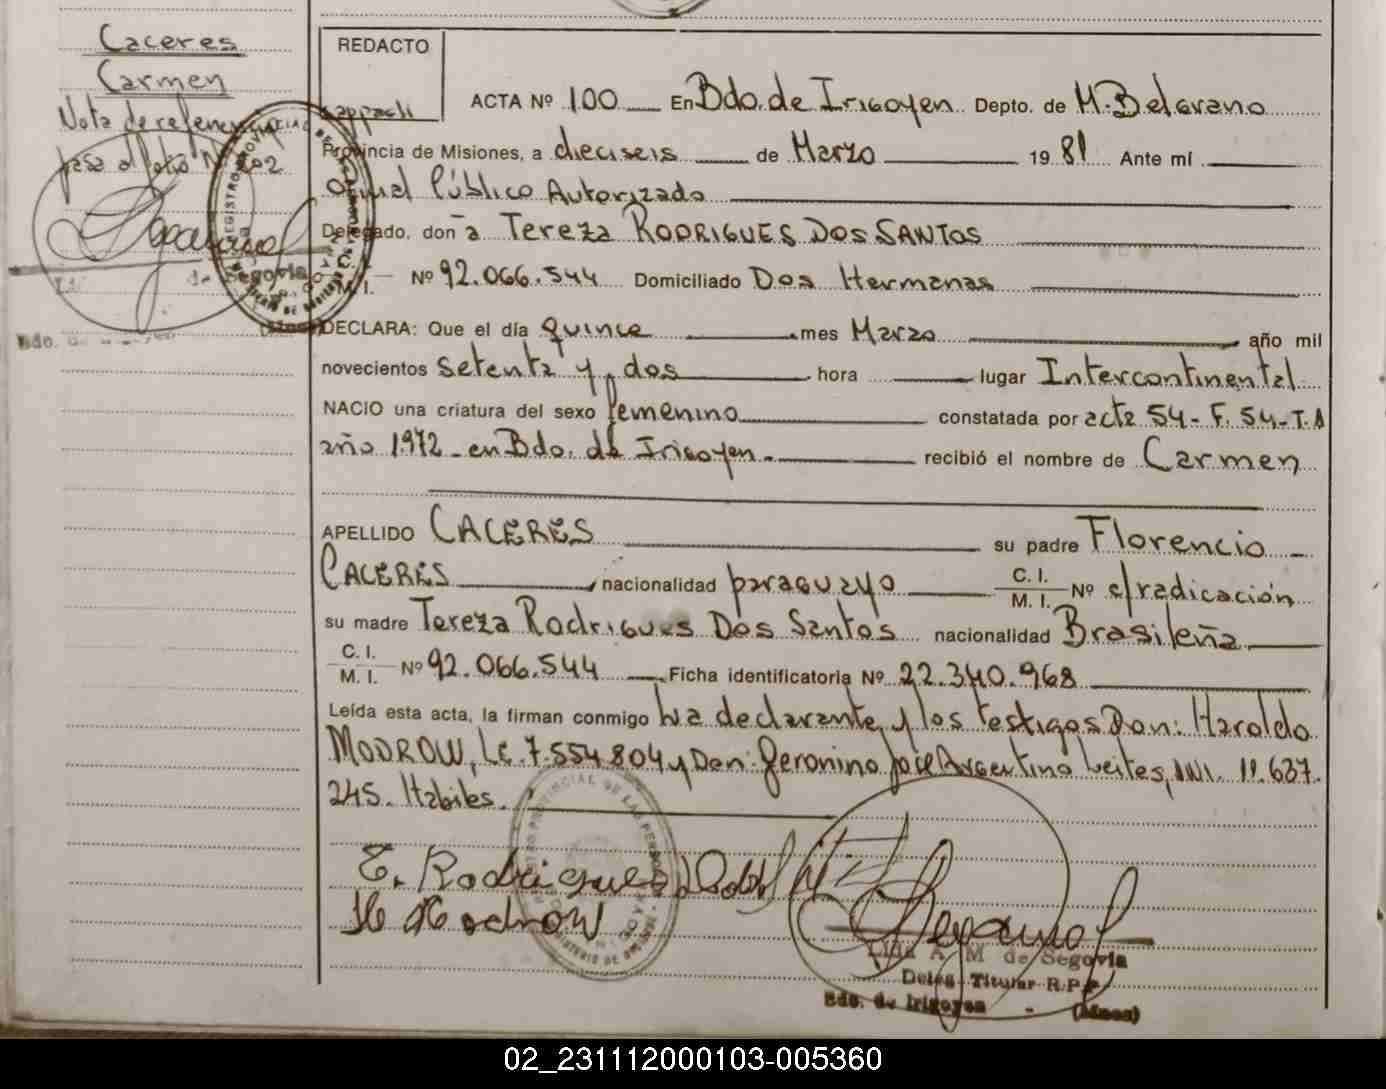 Caceres
Carmen
Nota de referencia
pasa al folio Nº 202
REDACTO
Cappacli
ACTA Nº 100 En Bdo. de Irigoyen Depto. de M. Belgrano
Provincia de Misiones, a dieciseis de Marzo 19 81 Ante mí
Oficial Público Autorizado
Delegado, don a Tereza RODRIGUES DOS SANTOS
C. I.
M. I. Nº 92.066.544 Domiciliado Dos Hermanas
DECLARA: Que el día quince mes Marzo año mil
novecientos setenta y dos hora lugar Intercontinental
NACIO una criatura del sexo femenino constatada por acta 54 - F. 54 - T. A
año 1.972 - en Bdo. de Irigoyen.- recibió el nombre de Carmen
APELLIDO CACERES su padre Florencio
CACERES, nacionalidad paraguayo C. I.
M. I. Nº c/radicación
su madre Tereza Rodrigues Dos Santos nacionalidad Brasileña
C. I.
M. I. Nº 92.066.544 Ficha identificatoria Nº 22.340.968
Leída esta acta, la firman conmigo La declarante y los testigos Don: Haroldo
MODROW, Le. 7.554.804 y Don: Geronino José Argentino Leites, DNI. 11.637.
245. Habiles.
E. Rodrigues
H Modrow
Lida A. M. de Segovia
Deleg. Titular R.P.P.
Bdo. de Irigoyen - (Mnes)
02_231112000103-005360